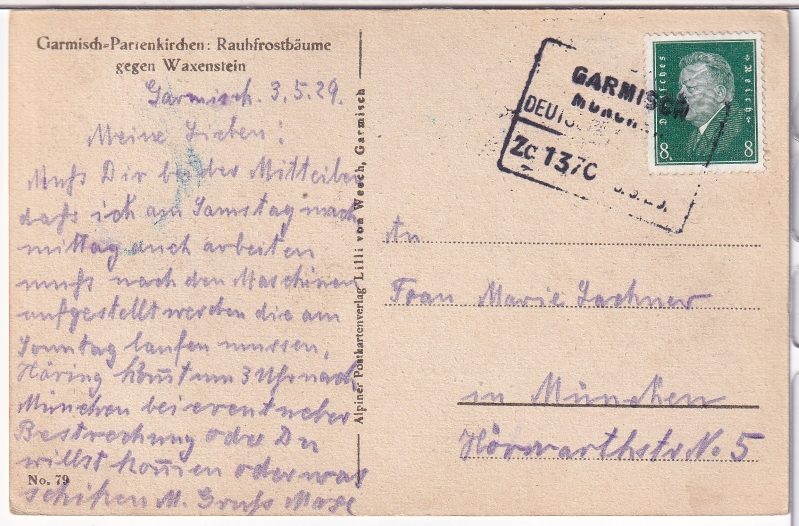 Garmisch-Partenkirchen: Rauhfrostbäume
gegen Waxenstein
Garmisch. 3.5.29.
Meine Lieben!
Muß Dir beides Mitteilen
daß ich am Samstag nach
mittag auch arbeiten
muß noch den Maschinen
aufgestellt werden die am
Sonntag laufen mussen,
Häring kom̄t um 3 Uhr nach
München bei event ueber
Bestrechung oder Du
willst kom̄en oder was
schiken M. Gruß Maxe
No. 79
Alpiner Postkartenverlag Lilli von Weech, Garmisch
GARMISCH
MÜNCHEN
Zc 137C
3.5.29.
Deutsches Reich
8 8
An
Frau Marie Lachner
in München
Hörwarthstr No 5